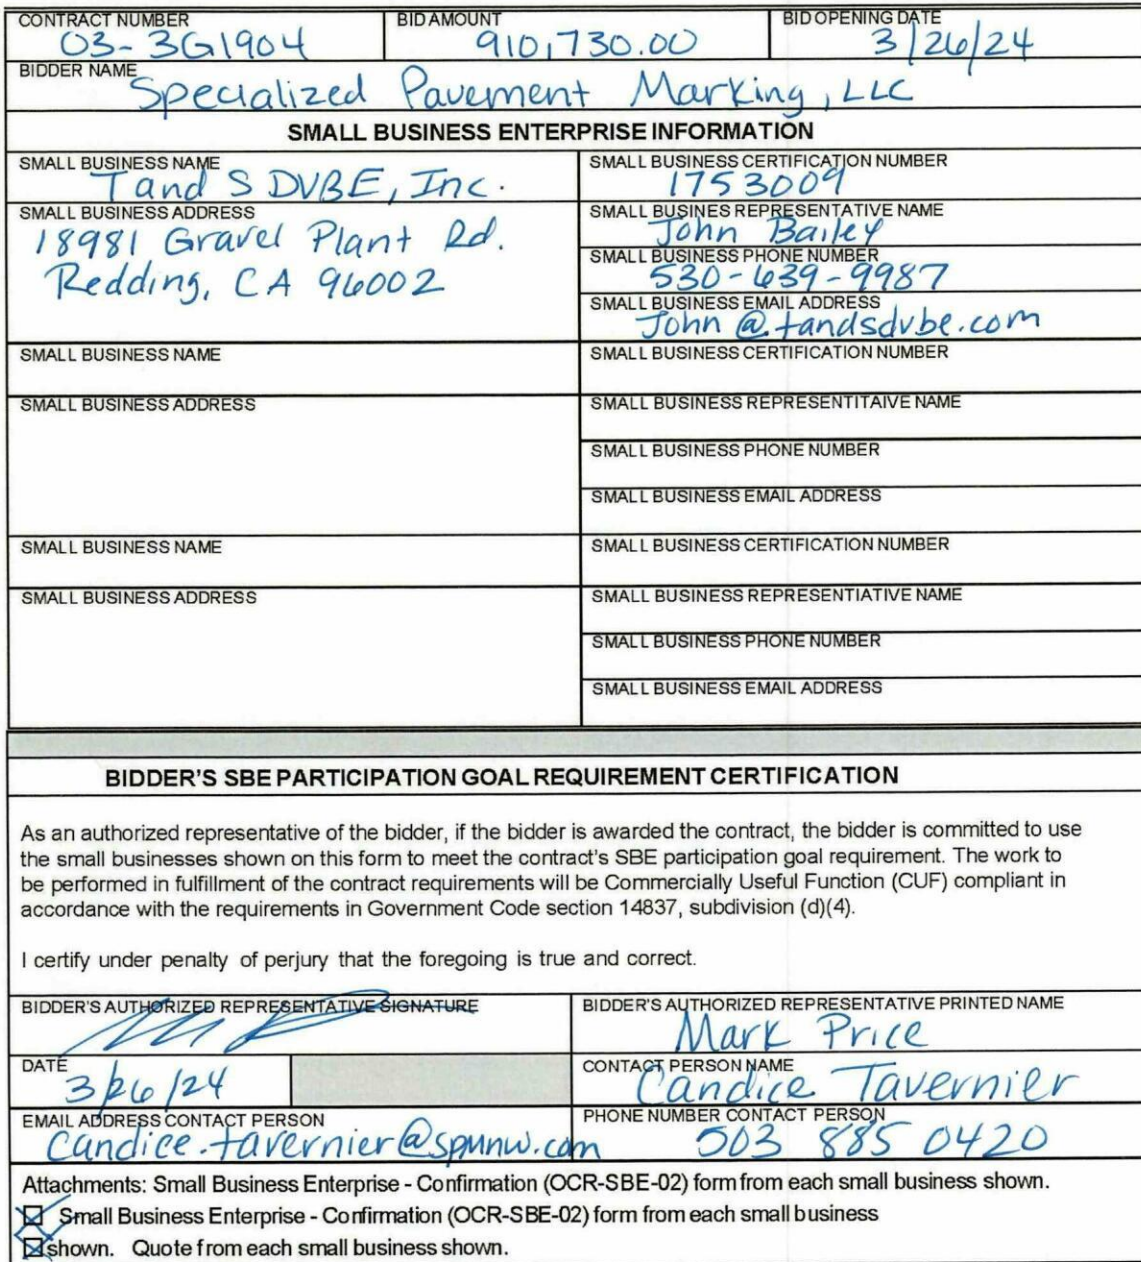 CONTRACT NUMBER BID AMOUNT BID OPENING DATE
03-3G1904 910,730.00 3/26/24
BIDDER NAME
Specialized Pavement Marking, LLC
SMALL BUSINESS ENTERPRISE INFORMATION
SMALL BUSINESS NAME
T and S DVBE, Inc.
SMALL BUSINESS CERTIFICATION NUMBER
1753009
SMALL BUSINESS ADDRESS
18981 Gravel Plant Rd.
Redding, CA 96002
SMALL BUSINES REPRESENTATIVE NAME
John Bailey
SMALL BUSINESS PHONE NUMBER
530-639-9987
SMALL BUSINESS EMAIL ADDRESS
John@tandsdvbe.com
SMALL BUSINESS NAME
SMALL BUSINESS CERTIFICATION NUMBER
SMALL BUSINESS ADDRESS
SMALL BUSINESS REPRESENTITAIVE NAME
SMALL BUSINESS PHONE NUMBER
SMALL BUSINESS EMAIL ADDRESS
SMALL BUSINESS NAME
SMALL BUSINESS CERTIFICATION NUMBER
SMALL BUSINESS ADDRESS
SMALL BUSINESS REPRESENTIATIVE NAME
SMALL BUSINESS PHONE NUMBER
SMALL BUSINESS EMAIL ADDRESS
BIDDER'S SBE PARTICIPATION GOAL REQUIREMENT CERTIFICATION
As an authorized representative of the bidder, if the bidder is awarded the contract, the bidder is committed to use
the small businesses shown on this form to meet the contract's SBE participation goal requirement. The work to
be performed in fulfillment of the contract requirements will be Commercially Useful Function (CUF) compliant in
accordance with the requirements in Government Code section 14837, subdivision (d)(4).
I certify under penalty of perjury that the foregoing is true and correct.
BIDDER'S AUTHORIZED REPRESENTATIVE SIGNATURE
BIDDER'S AUTHORIZED REPRESENTATIVE PRINTED NAME
Mark Price
DATE
3/26/24
CONTACT PERSON NAME
Candice Tavernier
EMAIL ADDRESS CONTACT PERSON
candice.tavernier@spmnw.com
PHONE NUMBER CONTACT PERSON
503 885 0420
Attachments: Small Business Enterprise - Confirmation (OCR-SBE-02) form from each small business shown.
Small Business Enterprise - Confirmation (OCR-SBE-02) form from each small business
shown. Quote from each small business shown.